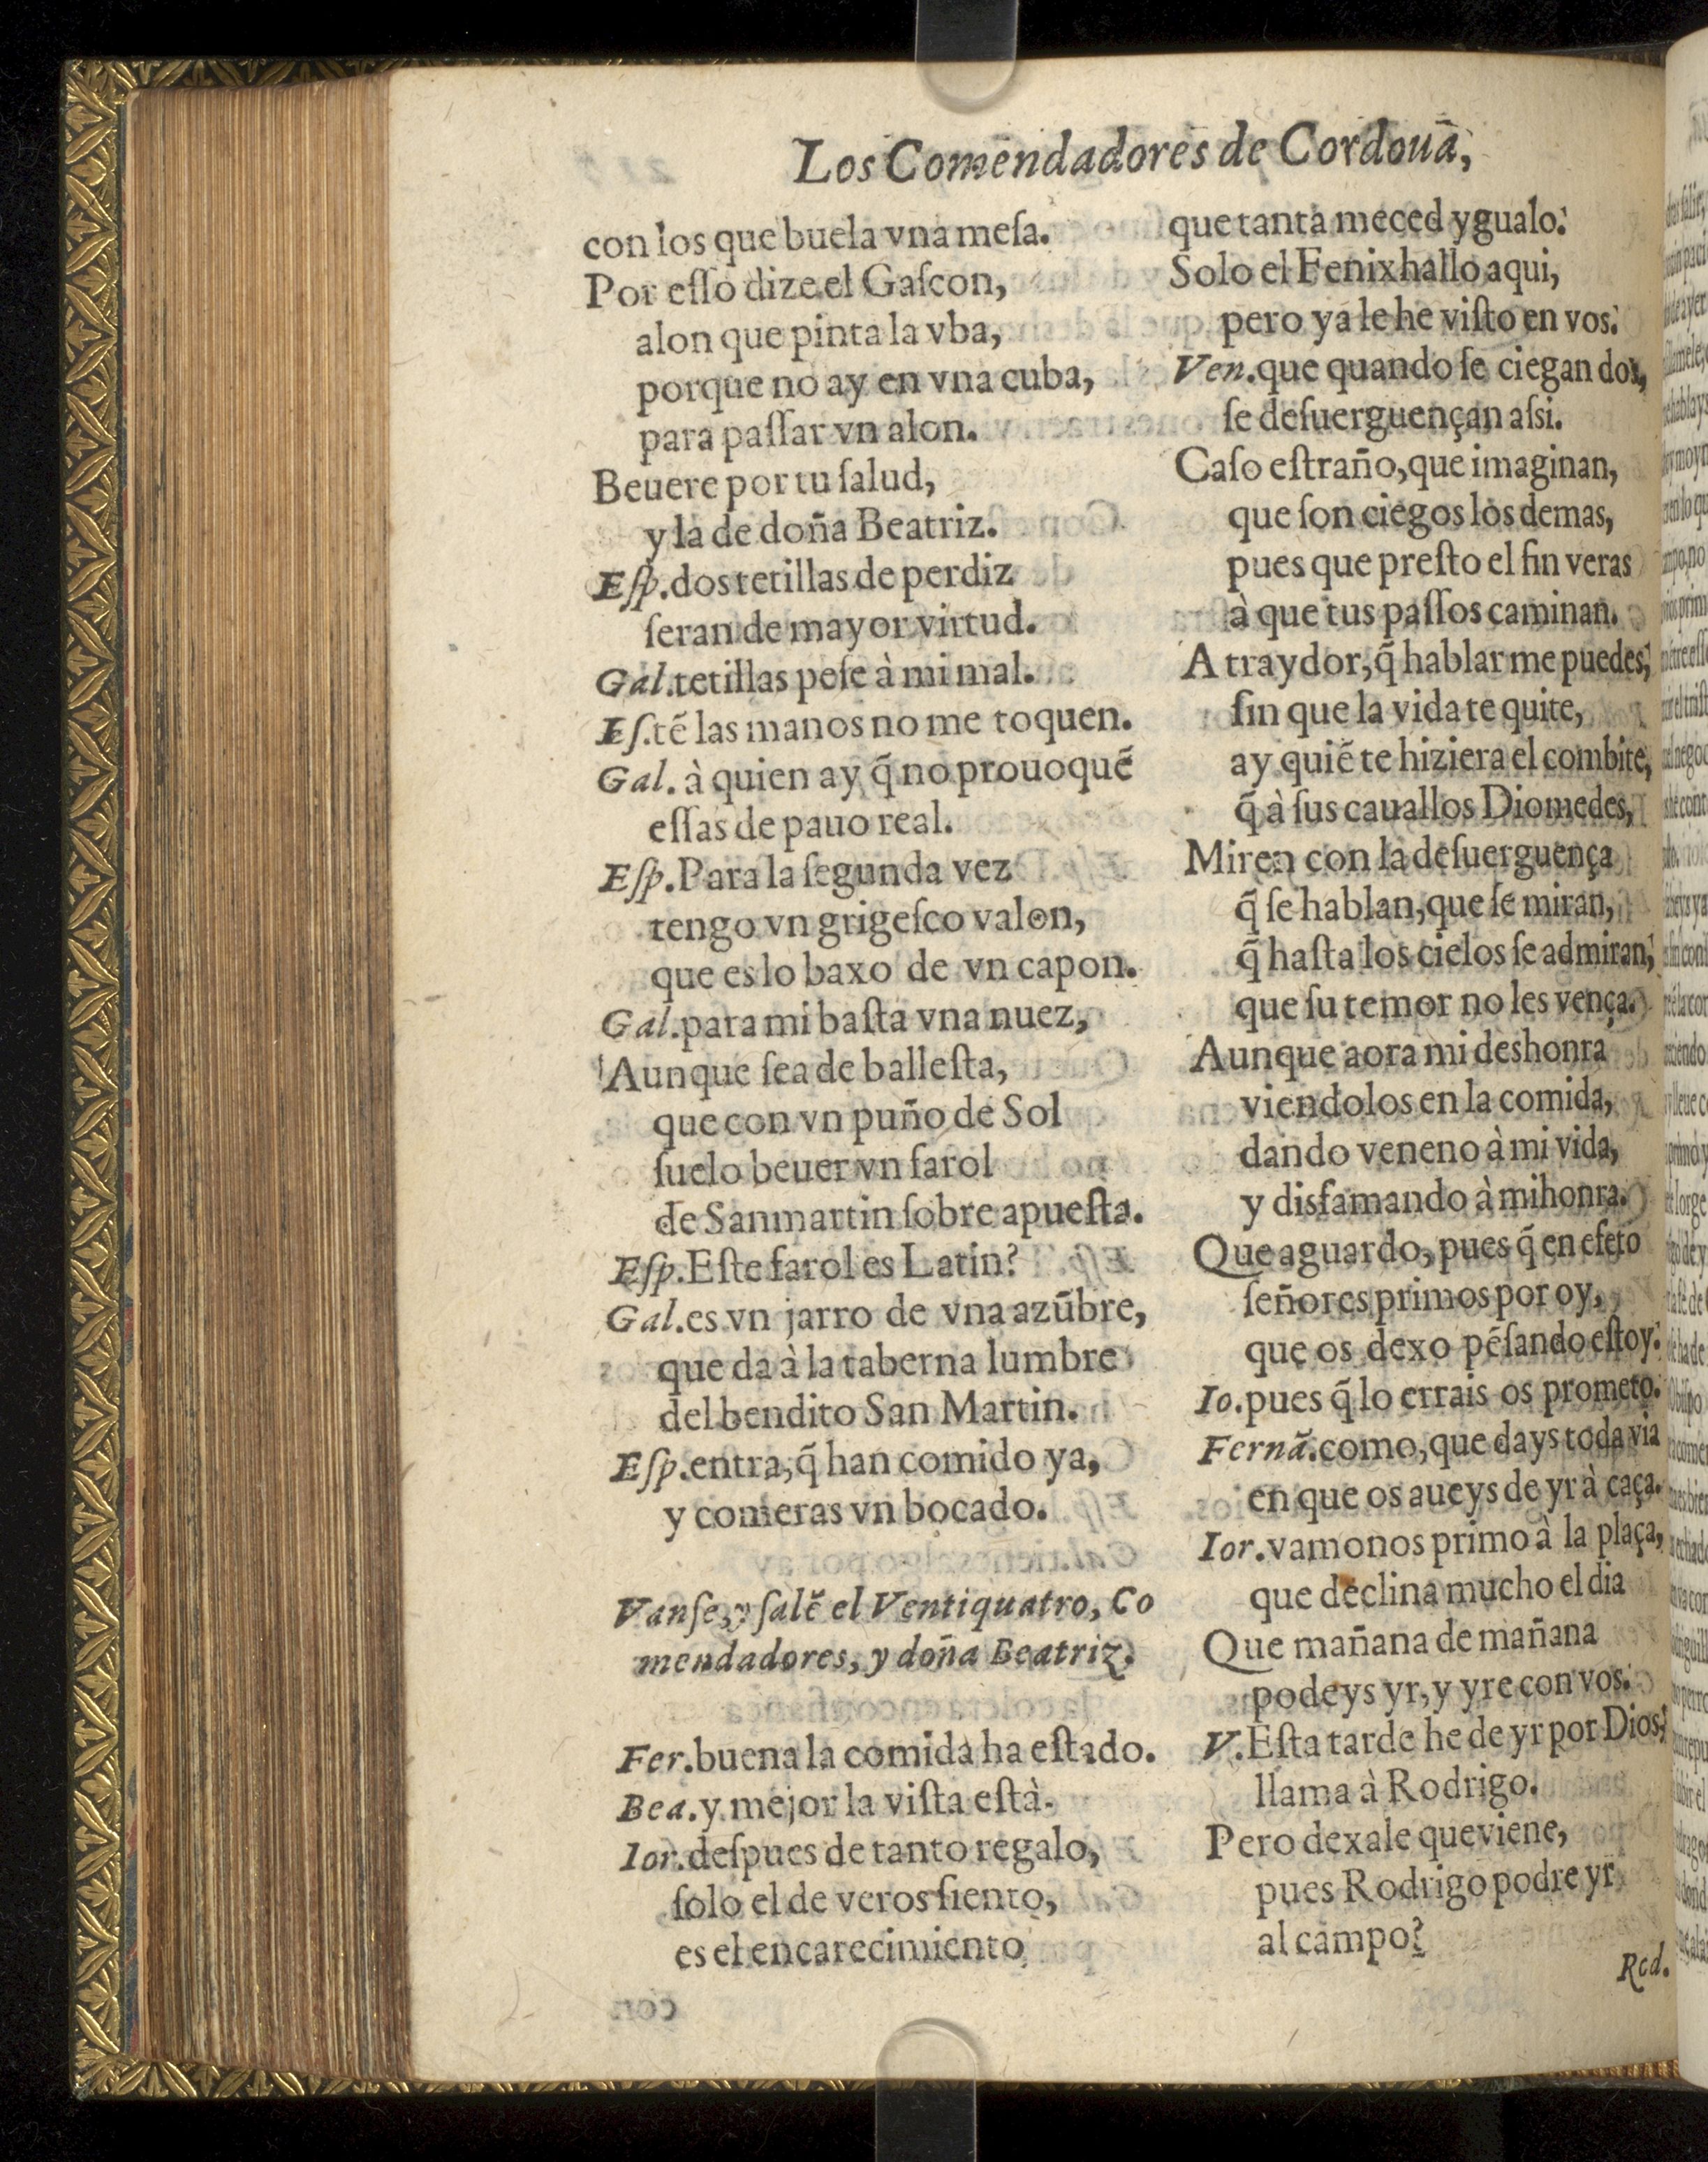 Los Comendadores de Cordoua,
con los que buela vna mesa.
Por esso dize el Gascon,
alon que pinta la vba,
porque no ay en vna cuba,
para passar vn alon.
Beuere por tu salud,
y la de doña Beatriz.
Esp. dos tetillas de perdiz
seran de mayor virtud.
Gal. tetillas pese à mi mal.
Es. tẽ las manos no me toquen.
Gal. à quien ay q̃ no prouoquẽ
essas de pauo real.
Esp. Para la segunda vez
tengo vn grigesco valon,
que es lo baxo de vn capon.
Gal. para mi basta vna nuez,
Aunque sea de ballesta,
que con vn puño de Sol
suelo beuer vn farol
de Sanmartin sobre apuesta.
Esp. Este farol es Latin?
Gal. es vn jarro de vna azũbre,
que da à la taberna lumbre
del bendito San Martin.
Esp. entra, q̃ han comido ya,
y comeras vn bocado.
Vanse, y salẽ el Ventiquatro, Co
mendadores, y doña Beatriz.
Fer. buena la comida ha estado.
Bea. y mejor la vista està.
Ior. despues de tanto regalo,
solo el de veros siento,
es el encarecimiento
que tanta meced ygualo.
Solo el Fenix hallo aqui,
pero ya le he visto en vos.
Ven. que quando se ciegan dos,
se desuerguençan assi.
Caso estraño, que imaginan,
que son ciegos los demas,
pues que presto el fin veras
à que tus passos caminan.
A traydor, q̃ hablar me puedes,
sin que la vida te quite,
ay quiẽ te hiziera el combite,
q̃ à sus cauallos Diomedes,
Miren con la desuerguença
q̃ se hablan, que se miran,
q̃ hasta los cielos se admiran,
que su temor no les vença.
Aunque aora mi deshonra
viendolos en la comida,
dando veneno à mi vida,
y disfamando à mi honra.
Que aguardo, pues q̃ en efeto
señores primos por oy,
que os dexo pẽsando estoy.
Io. pues q̃ lo errais os prometo.
Fernã. como, que days toda via
en que os aueys de yr à caça.
Ior. vamonos primo à la plaça,
que declina mucho el dia
Que mañana de mañana
podeys yr, y yre con vos.
V. Esta tarde he de yr por Dios,
llama à Rodrigo.
Pero dexale que viene,
pues Rodrigo podre yr
al campo?
Rod.